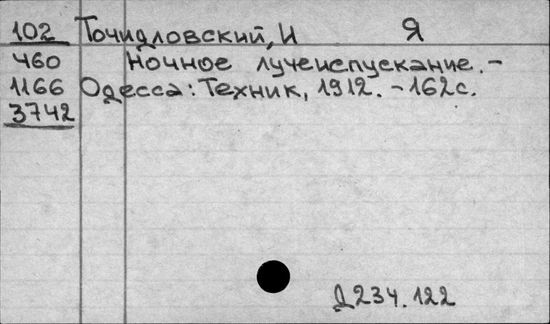 102 Точидловский, И Я
460 Ночное лучеиспускание. -
1166 Одесса: Техник, 1912. - 162 с.
3742
Д234.122